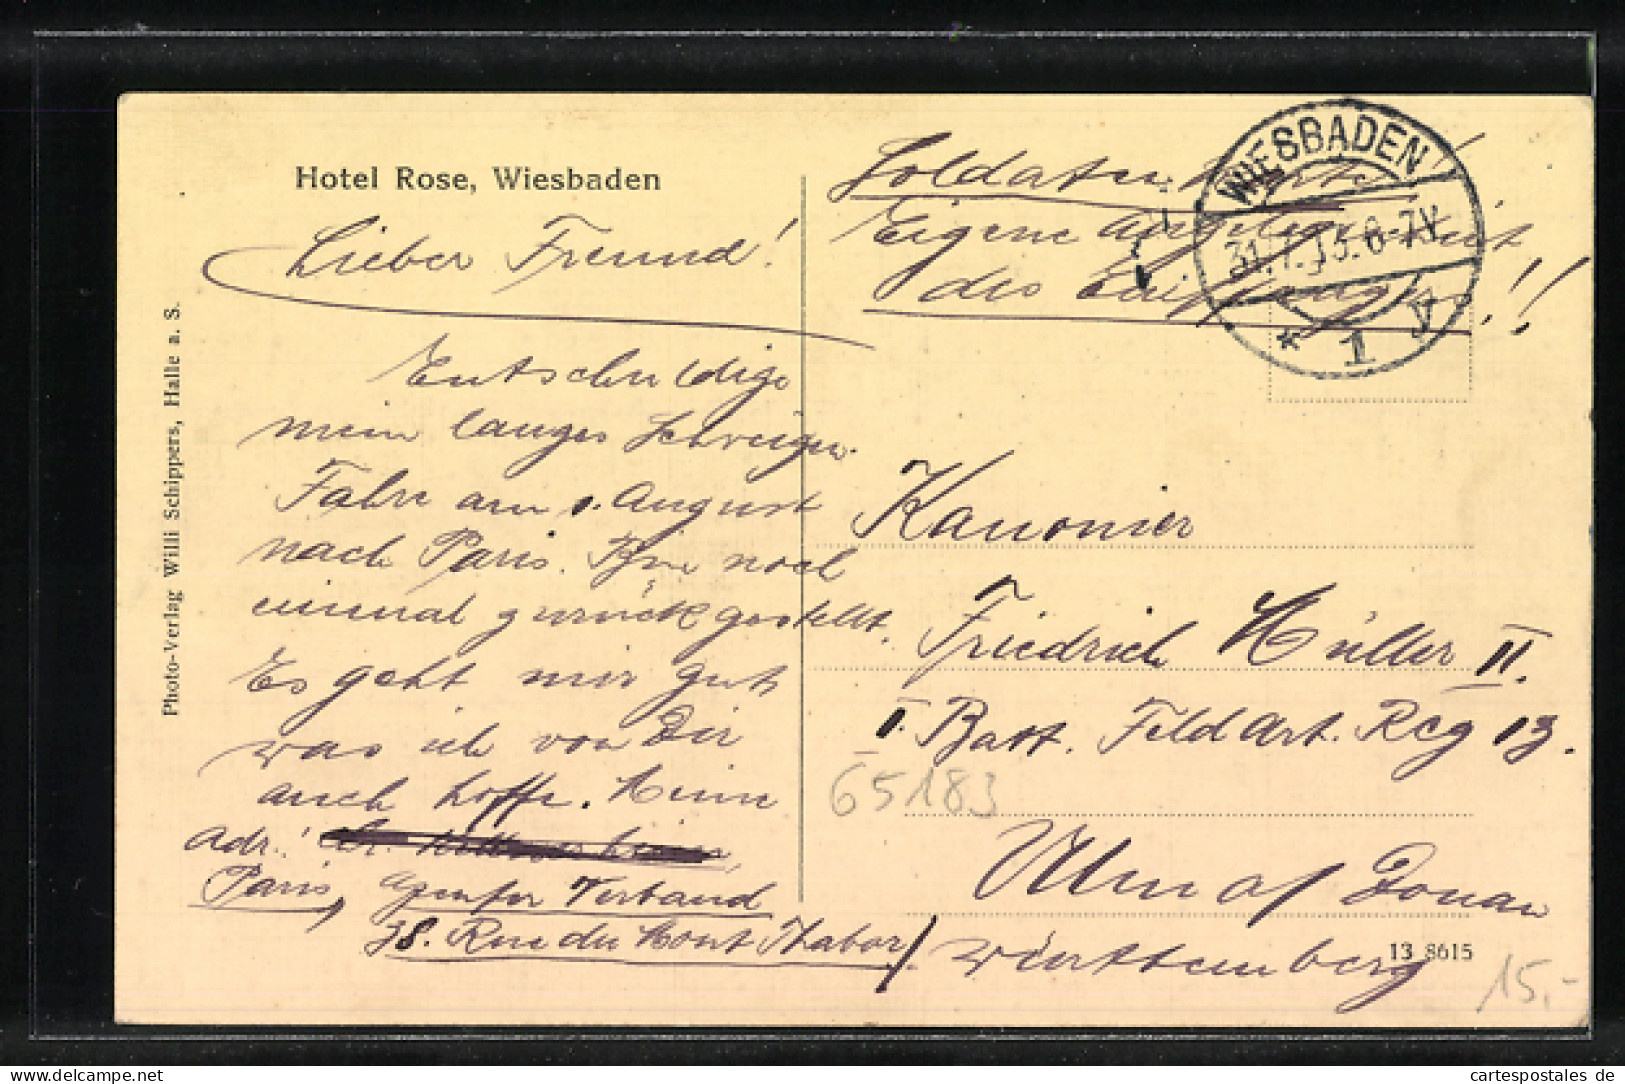 Hotel Rose, Wiesbaden
Lieber Freund!
Entschuldige
mein langes Schweigen.
Fahre am 1. August
nach Paris. Bin noch
einmal zurückgestellt.
Es geht mir gut
was ich von Dir
auch hoffe. Meine
Adr.:
Paris, Genfer Verband
38. Rue du Mont Thabor
Photo-Verlag Willi Schippers, Halle a. S.
Soldatenkarte!
Eigene Angelegenheit
des Empfängers!!
WIESBADEN
31.7.13. 6-7V.
* 1 y
Kanonier
Friedrich Müller II.
I. Batt. Feld Art. Reg 13.
65183
Ulm a/ Donau
Württemberg
13 8615
15.-
www.delcampe.net
cartespostales de